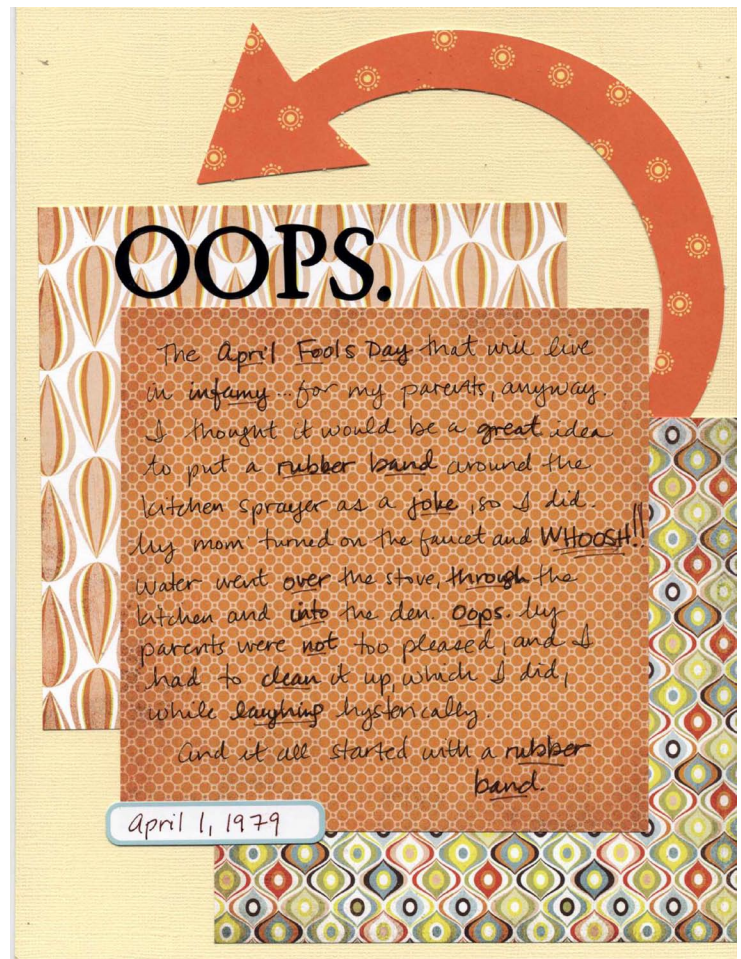 OOPS.
The April Fools Day that will live
in infamy...for my parents, anyway.
I thought it would be a great idea
to put a rubber band around the
kitchen sprayer as a joke, so I did.
My mom turned on the faucet and WHOOSH!!
Water went over the stove, through the
kitchen and into the den. Oops. My
parents were not too pleased, and I
had to clean it up, which I did,
while laughing hysterically.
And it all started with a rubber
band.
April 1, 1979